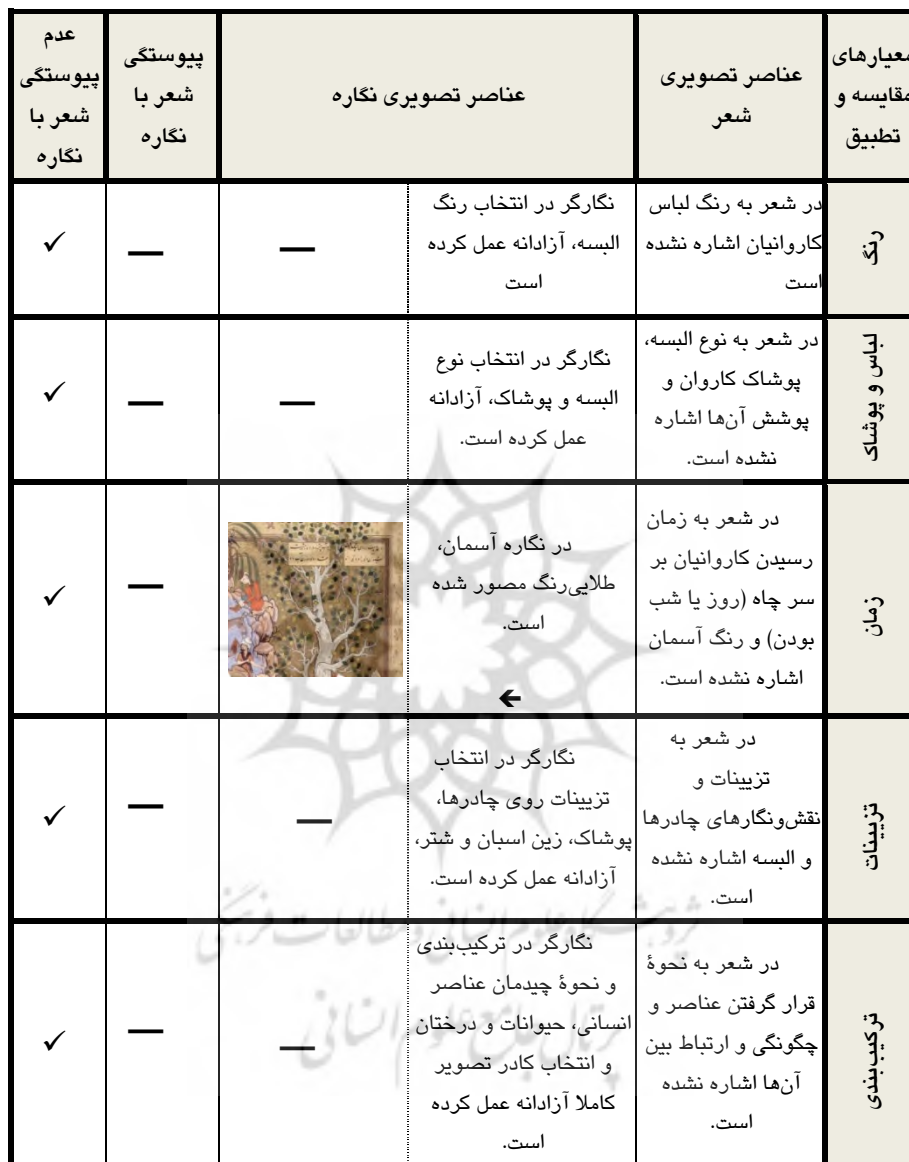 معیارهای
مقایسه و
تطبیق
عناصر تصویری
شعر
عناصر تصویری نگاره
پیوستگی
شعر با
نگاره
عدم
پیوستگی
شعر با
نگاره
رنگ
در شعر به رنگ لباس
کاروانیان اشاره نشده
است
نگارگر در انتخاب رنگ
البسه، آزادانه عمل کرده
است
—
—
✓
لباس و پوشاک
در شعر به نوع البسه،
پوشاک کاروان و
پوشش آن‌ها اشاره
نشده است.
نگارگر در انتخاب نوع
البسه و پوشاک، آزادانه
عمل کرده است.
—
—
✓
زمان
در شعر به زمان
رسیدن کاروانیان بر
سر چاه (روز یا شب
بودن) و رنگ آسمان
اشاره نشده است.
در نگاره آسمان،
طلایی‌رنگ مصور شده
است.
←
—
✓
تزیینات
در شعر به
تزیینات و
نقش‌ونگارهای چادرها
و البسه اشاره نشده
است.
نگارگر در انتخاب
تزیینات روی چادرها،
پوشاک، زین اسبان و شتر،
آزادانه عمل کرده است.
—
—
✓
ترکیب‌بندی
در شعر به نحوهٔ
قرار گرفتن عناصر و
چگونگی و ارتباط بین
آن‌ها اشاره نشده
است.
نگارگر در ترکیب‌بندی
و نحوهٔ چیدمان عناصر
انسانی، حیوانات و درختان
و انتخاب کادر تصویر
کاملا آزادانه عمل کرده
است.
—
—
✓
پژوهشگاه علوم انسانی و مطالعات فرهنگی
پرتال جامع علوم انسانی